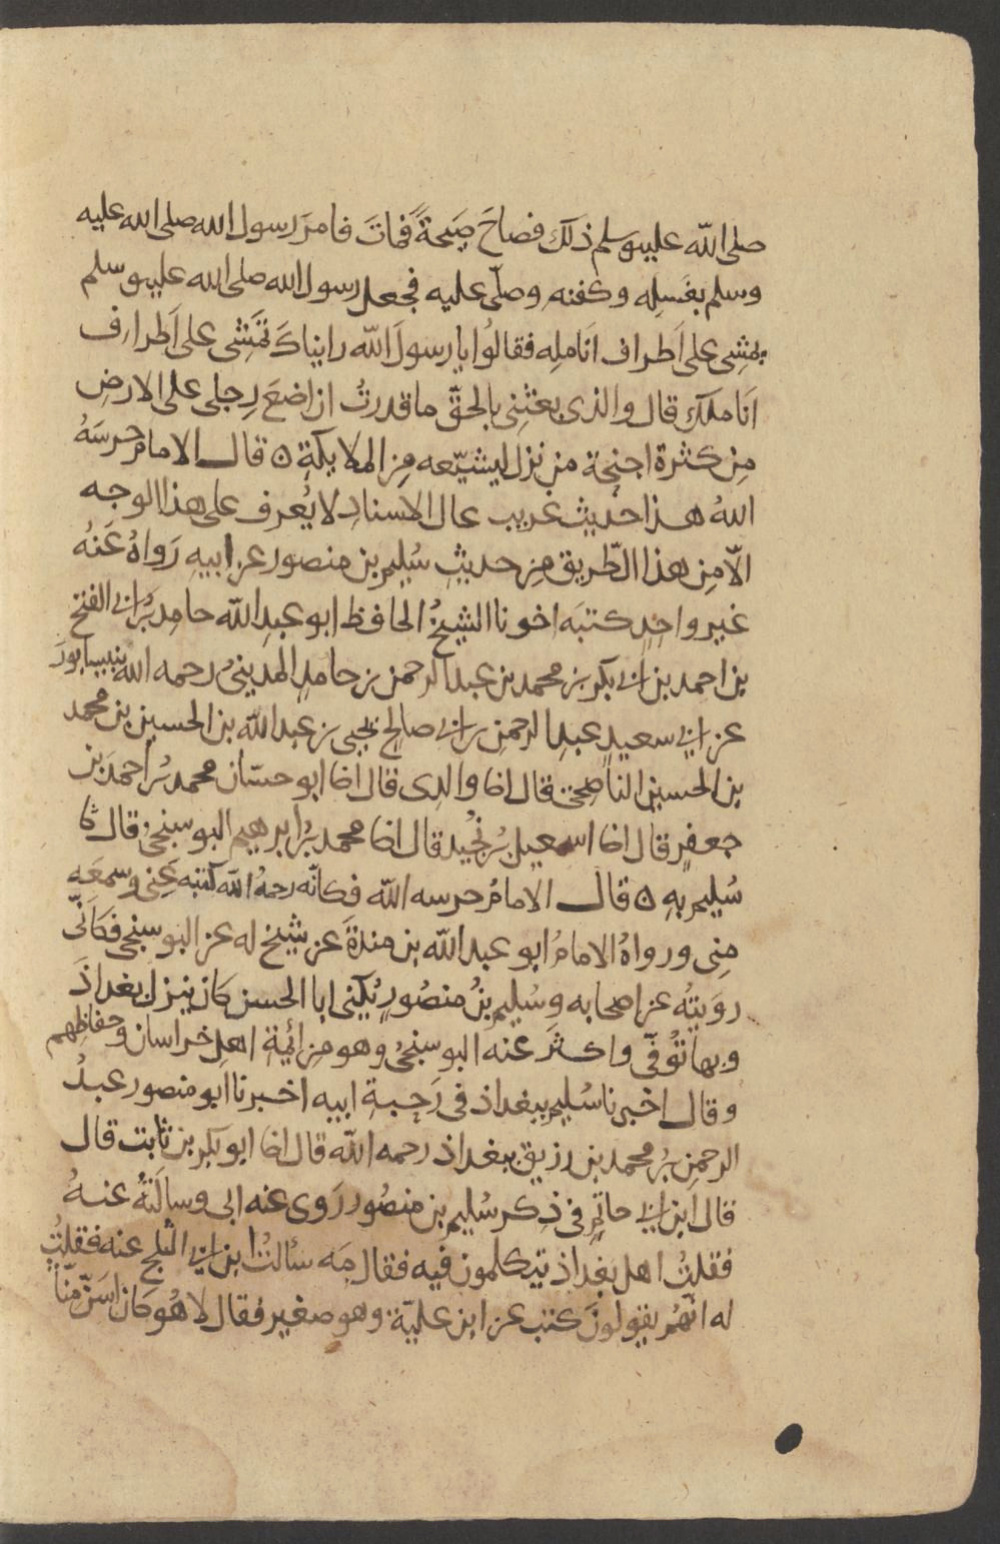 صلى الله عليه وسلم ذلك فصاحَ صَيحةً فماتَ فامرَ رسول الله صلى الله عليه
وسلم بغسله وكفنه وصلّى عليه فجعل رسول الله صلى الله عليه وسلم
يمشِى على اَطراف انَامله فقالُوا يا رسولَ الله رايناكَ تمَشى على اَطراف
اَناملكَ قال والذى بعثنِى بالحقّ ما قدرتُ ان اضعَ رِجلى على الارضِ
مِن كثرة اجنِحة من نزل ليشيّعه مِن الملايكة ٥ قال الامام حرسَهُ
اللهُ هذا حديث غريب عال الاسنادِ لا يُعرف على هذا الوجه
الّا مِن هذا الطّريق مِن حديثِ سُليم بن منصور عن ابيهِ رَواهُ عَنهُ
غير واحدٍ كتبَه اخونا الشيخُ الحافظ ابو عبدِ الله حامِد بنُ ابى الفتح
بن احمد بن ابى بكر بن محمد بن عبد الرحمن بن حامدِ المدينىُ رحمه الله بنيسابورَ
عن ابى سعيدٍ عبدِ الرحمنِ بن ابى صالح يحيى بن عبد الله بن الحسين بن محمد
بن الحسين الناصحى قال انا والدِى قال انا ابو حسّان محمد بنُ احمدَ بن
جعفرٍ قال انا اسمعيل بنُ نجُيد قال انا محمد بنُ ابرهيم البوسنجىُ قال ثا
سُليم بهِ ٥ قال الامامُ حرسه الله فكانّه رحمهُ الله كتبه عنِى وسمعَه
مِنِى ورواهُ الامامُ ابو عبد الله بن مندةَ عن شيخ له عن البوسنجى فكَانّى
روَيتهُ عن اصحابه وسُليم بنُ منصُورٍ يُكنى ابا الحسن كان ينزل بغداذَ
وبها تُوفّى واكثرَ عنه البوسنجىُ وهو مِن ائِمة اهلِ خراسان وحفاظِهم
وقال اخبرنا سُليم ببغداذ فى رَحبةِ ابيه اخبرنا ابو منصور عبدُ
الرحمنِ بنُ محمد بن رزيق ببغداذ رحمه الله قال انا ابو بكر بن ثابت قال
قال ابن ابى حاتمٍ فى ذِكر سُليم بن منصُور رَوى عنه ابى وسالتُهُ عنهُ
فقلتُ اهل بغداذ يتكلمون فيه فقال مَه سألتُ ابن ابى الثلج عنه فقلتُ
له انّهُم يقولونَ كتب عن ابن عليّة وهو صغير فقال لا هُو كان اسَنّ مِنّا